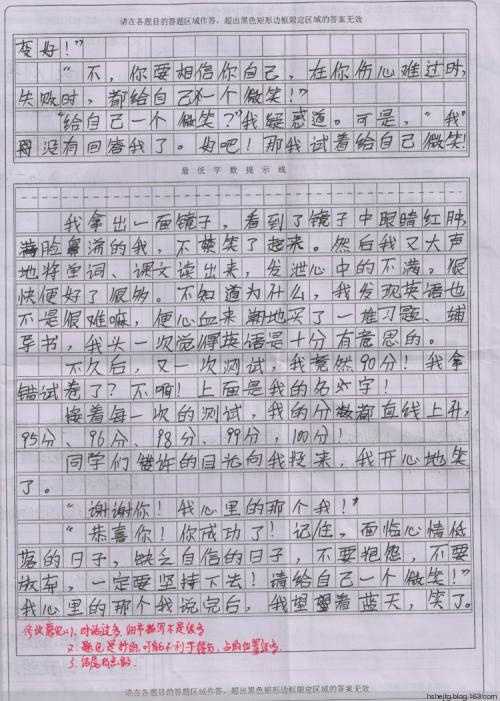 请在各题目的答题区域作答,超出黑色矩形边框限定区域的答案无效
变好!”
“不,你要相信你自己,在你伤心难过时,
失败时,都给自己一个微笑!”
“给自己一个微笑?”我疑惑道。可是,“我”
没有回答我了。好吧!那我试着给自己微笑!
最低字数提示线
我拿出一面镜子,看到了镜子中眼睛红肿,
满脸鼻涕的我,不禁笑了起来。然后我又大声
地将单词、课文读出来,发泄心中的不满。很
快便好了很多。不知道为什么,我发现英语也
不是很难嘛,便心血来潮地买了一堆习题、辅
导书,我头一次觉得英语是十分有意思的。
不久后,又一次测试,我竟然90分!我拿
错试卷了?不啊!上面是我的名字!
接着每一次的测试,我的分数都直线上升,
95分、96分、98分、99分,100分!
同学们惊讶的目光向我投来,我开心地笑
了。
“谢谢你!我心里的那个我!”
“恭喜你!你成功了!记住,面临心情低
落的日子,缺乏自信的日子,不要抱怨,不要
放弃,一定要坚持下去!请给自己一个微笑!”
我心里的那个我说完后,我望着蓝天,笑了。
修改意见:1、对话过多,细节描写不是很多
2、题也是抄的,可能不利于得分,占的位置过多
3、结尾
请在各题目的答题区域作答,超出黑色矩形边框限定区域的答案无效
hshejtg.blog.163.com